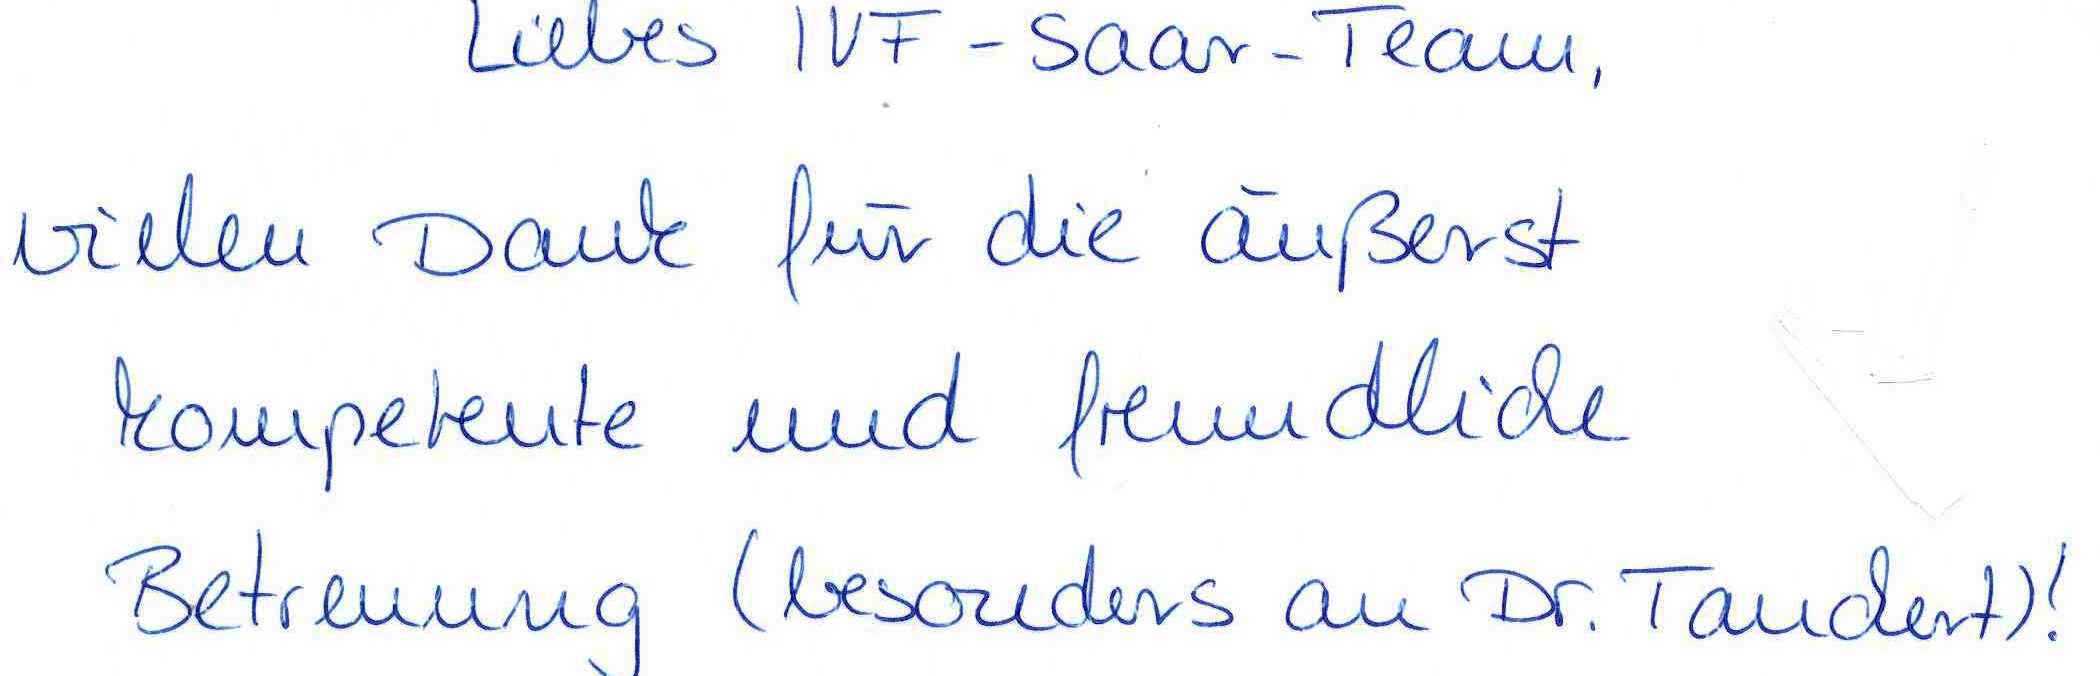 Liebes IVF-Saar-Team,
vielen Dank für die äußerst
kompetente und freundliche
Betreuung (besonders an Dr. Tandert)!